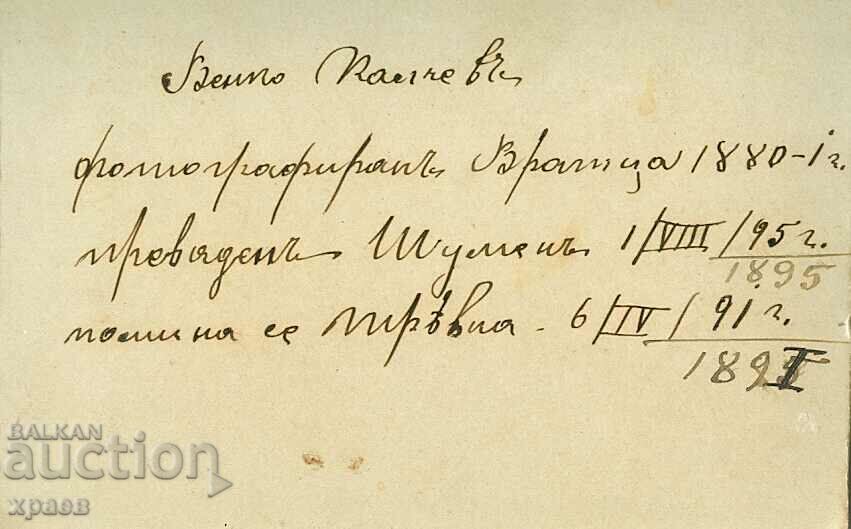 Венко Калчевъ
фотографиранъ Вратца 1880-1г.
преваденъ Шуменъ 1/VIII/95г.
1895
помина се Трѣвна - 6/IV/91г.
189
BALKAN
auction
храев